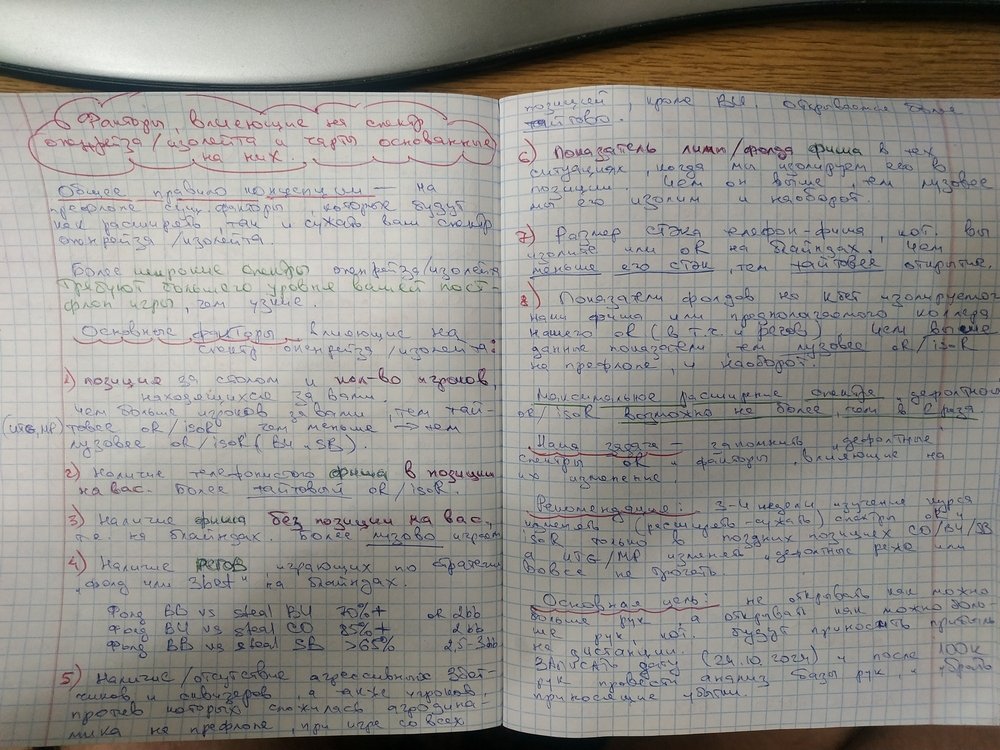 Факторы, влияющие на спектр
опенрейза/изолейта и чарты основанные
на них.
Общее правило концепции — на
префлопе есть факторы, которые будут
как расширять, так и сужать ваш спектр
опенрейза/изолейта
Более широкие спектры опенрейза/изолейта
требуют большего уровня вашей пост-
флоп игры, чем узкие.
Основные факторы влияющие на
спектр опенрейза/изолейта:
1) позиция за столом и кол-во игроков,
находящихся за вами.
Чем больше игроков за вами, тем тай-
(UTG, MP) товее oR/isoR чем меньше → тем
лузовее oR/isoR (BU, SB).
2) Наличие телефонистого фиша в позиции
на вас. Более тайтовый oR/isoR.
3) Наличие фиша без позиции на вас,
т.е. на блайндах. Более лузово играем
4) Наличие регов играющих по стратегии
„фолд или 3bet" на блайндах.
Фолд BB vs steal BU 70%+ oR 2bb
Фолд BU vs steal CO 85%+ 2bb
Фолд BB vs steal SB >65% 2,5-3bb
5) Наличие/отсутствие агрессивных 3бет-
чиков и сквизеров, а также игроков,
против которых сложилась агродина-
мика на префлопе, при игре со всех
позиций, кроме BU. Открывается более
тайтово.
6) Показатель лимп/фолда фиша в тех
ситуациях, когда мы изолируем его в
позиции. Чем он выше, тем лузовее
мы его изолим и наоборот.
7) Размер стэка телефон-фиша, кот. вы
изолите или oR на блайндах. Чем
меньше его стэк, тем тайтовее открытие.
8) Показатели фолдов на кбет изолируемого
нами фиша или предполагаемого коллера
нашего oR (в т.ч. и регов). Чем выше
данные показатели, тем лузовее oR/isoR
на префлопе, и наоборот.
Максимальное расширение спектра дефолтного
oR/isoR возможно не более, чем в 2 раза
Наша задача — запомнить дефолтные
спектры oR и факторы, влияющие на
их изменение.
Рекомендация: 3-4 недели изучения курса
изменять (расширять-сужать) спектры oR и
isoR только в поздних позициях CO/BU/SB
а UTG/MP изменять дефолтные реже или
вовсе не трогать.
Основная цель: не открывать как можно
больше рук, а открывать как можно боль-
ше рук, кот. будут приносить прибыль
на дистанции.
Записать дату (24.10.2024) и после 100К
рук провести анализ базы рук, и убрать
приносящие убытки.